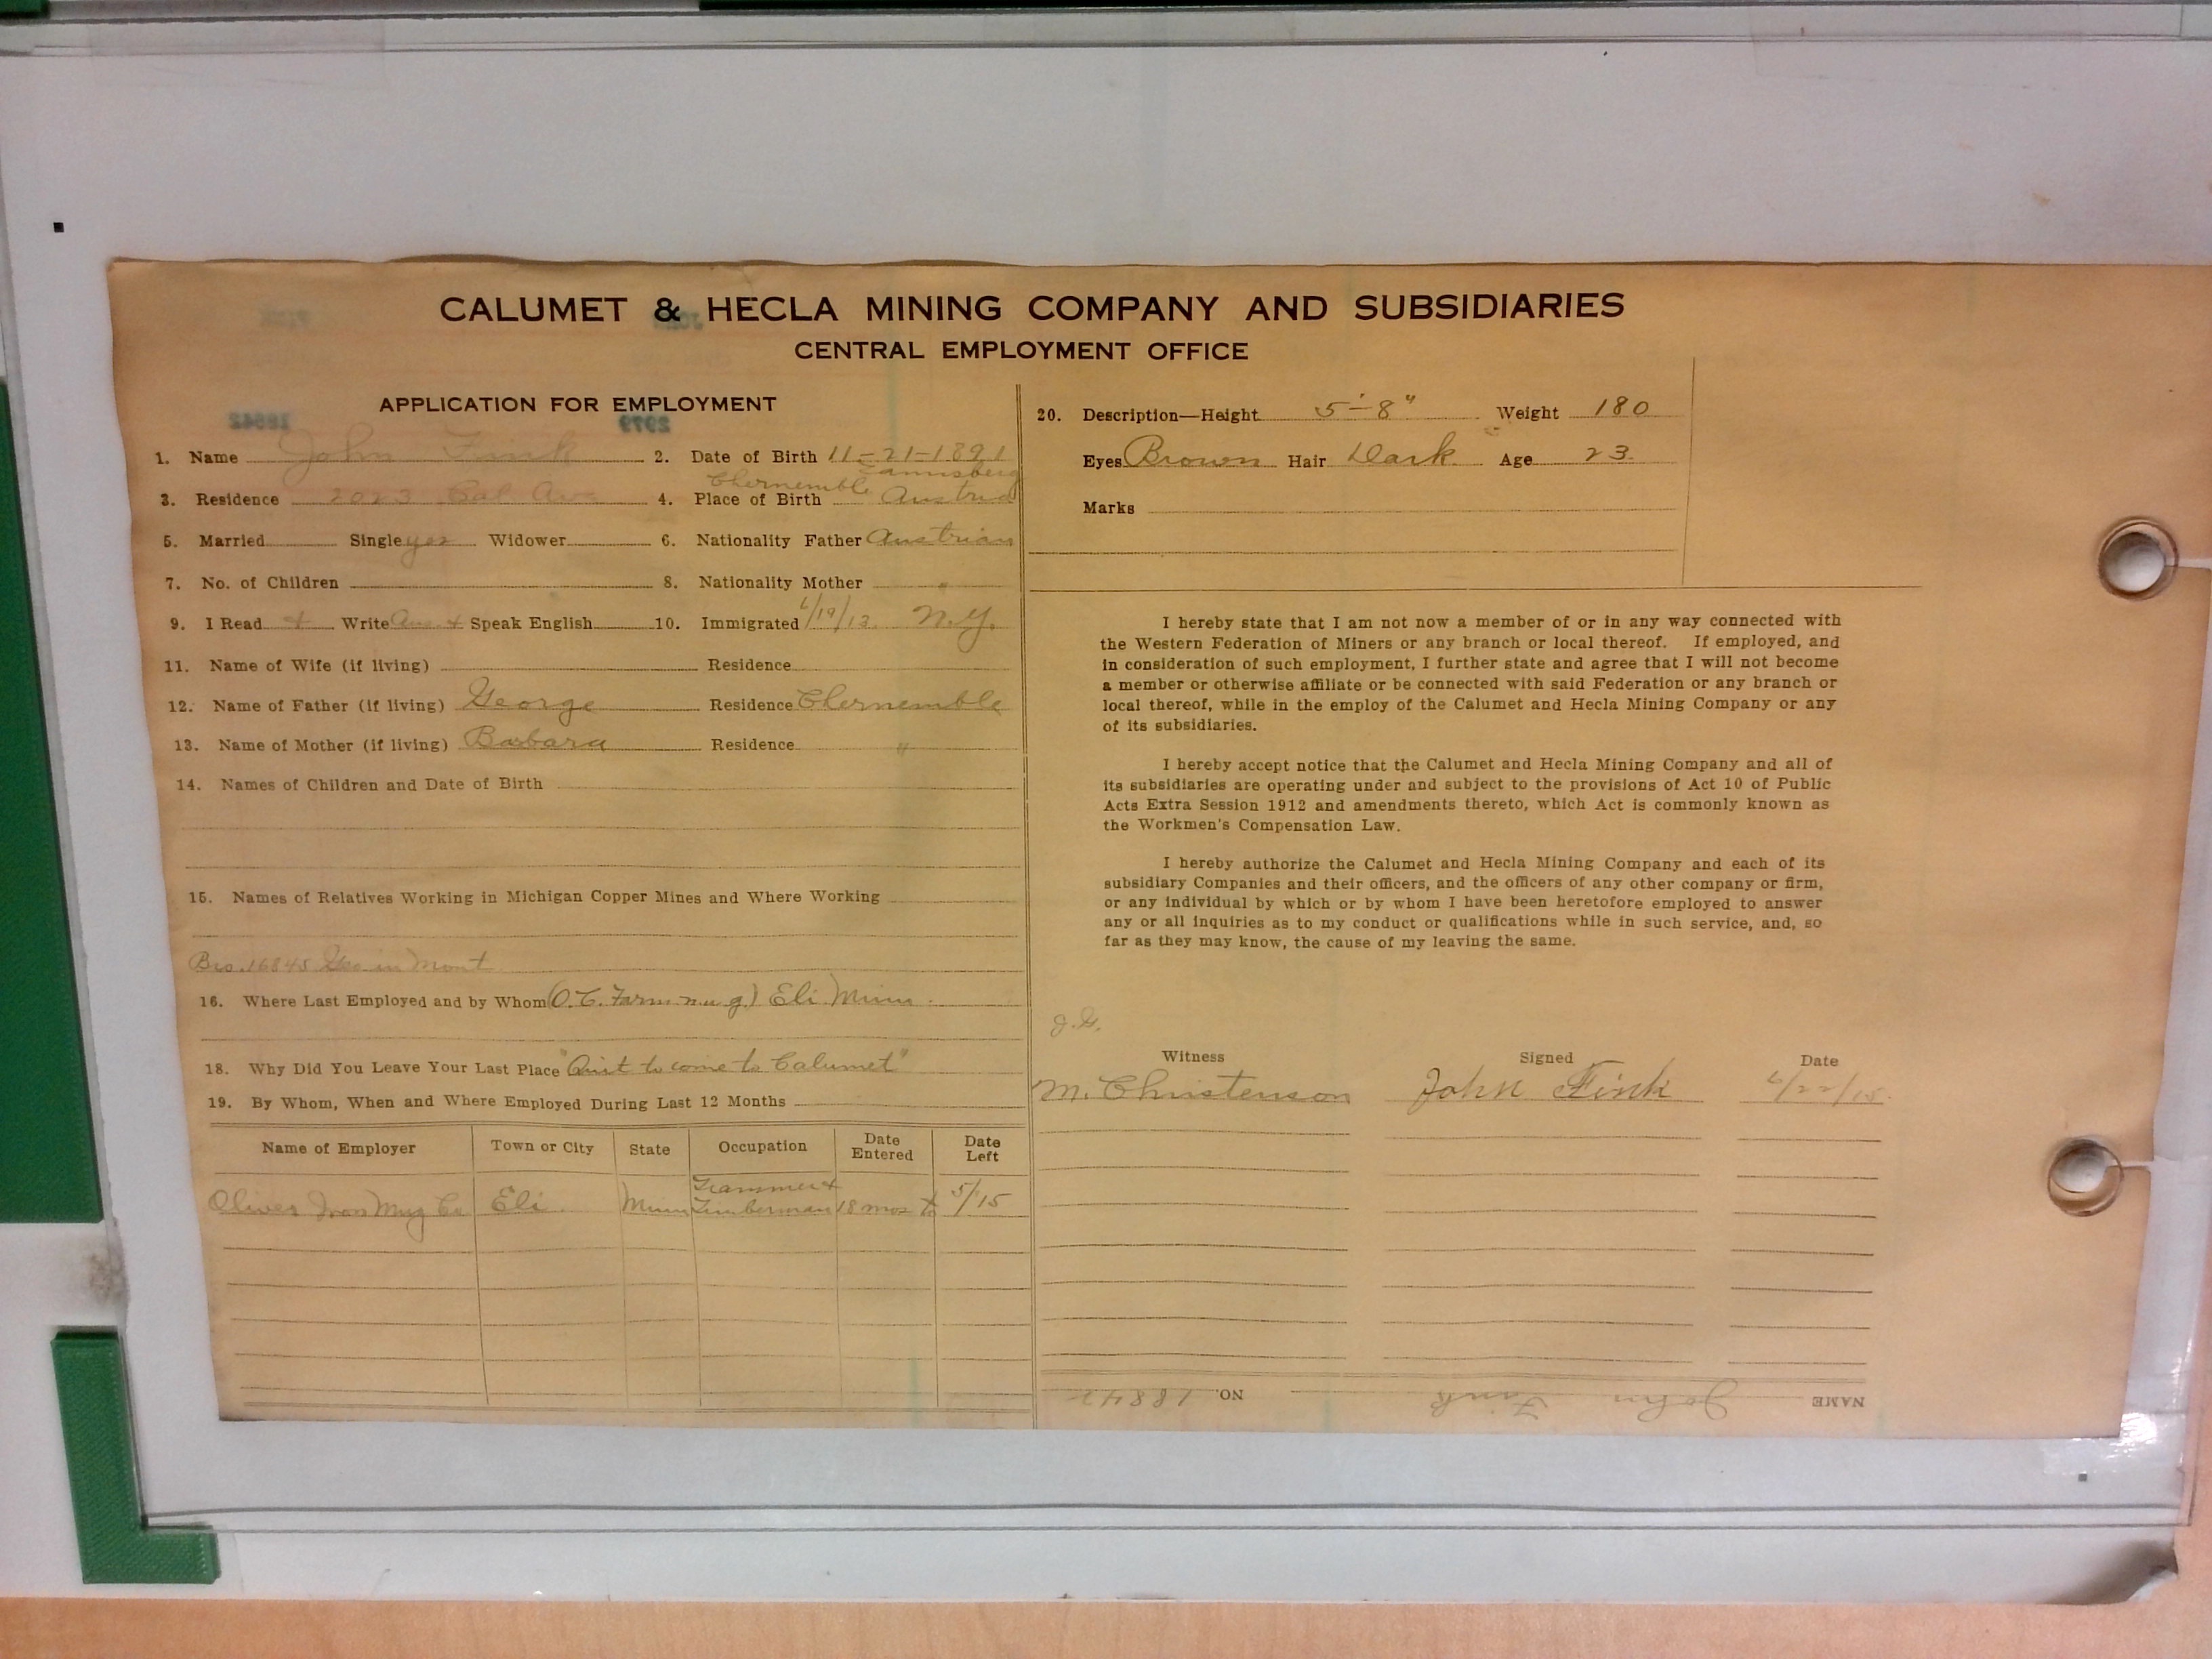 CALUMET & HECLA MINING COMPANY AND SUBSIDIARIES
CENTRAL EMPLOYMENT OFFICE
APPLICATION FOR EMPLOYMENT
18842 2979
1. Name John Fink 2. Date of Birth 11-21-1891
3. Residence 2023 Cal Ave 4. Place of Birth Chernemble Austria
5. Married Single yes Widower 6. Nationality Father Austrian
7. No. of Children 8. Nationality Mother "
9. I Read + Write Aus. + Speak English 10. Immigrated 6/19/13. N.Y.
11. Name of Wife (if living) Residence
12. Name of Father (if living) George Residence Chernemble
13. Name of Mother (if living) Barbara Residence "
14. Names of Children and Date of Birth
15. Names of Relatives Working in Michigan Copper Mines and Where Working
Bro. 16845 in Mont
16. Where Last Employed and by Whom Eli Minn.
18. Why Did You Leave Your Last Place "Quit to come to Calumet"
19. By Whom, When and Where Employed During Last 12 Months
Name of Employer Town or City State Occupation Date Entered Date Left
Oliver Iron Mng Co Eli. Minn Trammer + Timberman 18 mos to 5/15
20. Description—Height 5'-8" Weight 180
Eyes Brown Hair Dark Age 23
Marks
I hereby state that I am not now a member of or in any way connected with
the Western Federation of Miners or any branch or local thereof. If employed, and
in consideration of such employment, I further state and agree that I will not become
a member or otherwise affiliate or be connected with said Federation or any branch or
local thereof, while in the employ of the Calumet and Hecla Mining Company or any
of its subsidiaries.
I hereby accept notice that the Calumet and Hecla Mining Company and all of
its subsidiaries are operating under and subject to the provisions of Act 10 of Public
Acts Extra Session 1912 and amendments thereto, which Act is commonly known as
the Workmen's Compensation Law.
I hereby authorize the Calumet and Hecla Mining Company and each of its
subsidiary Companies and their officers, and the officers of any other company or firm,
or any individual by which or by whom I have been heretofore employed to answer
any or all inquiries as to my conduct or qualifications while in such service, and, so
far as they may know, the cause of my leaving the same.
Witness Signed Date
M. Christenson John Fink 6/22/15.
NAME John Fink NO. 18842